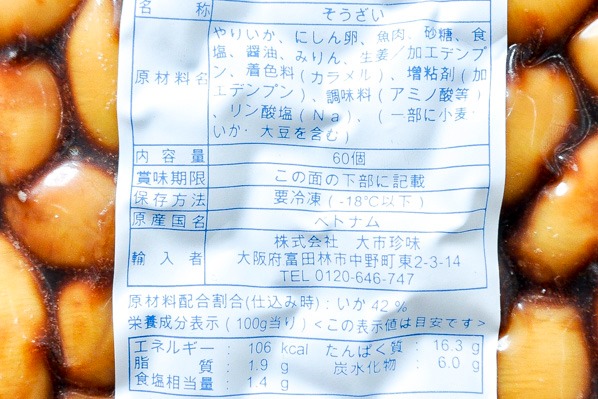 名 称 そうざい
原材料名 やりいか、にしん卵、魚肉、砂糖、食
塩、醤油、みりん、生姜／加工デンプ
ン、着色料(カラメル)、増粘剤(加
工デンプン)、調味料(アミノ酸等)
、リン酸塩(Na)、(一部に小麦・
いか・大豆を含む)
内容量 60個
賞味期限 この面の下部に記載
保存方法 要冷凍(-18℃以下)
原産国名 ベトナム
輸入者 株式会社 大市珍味
大阪府富田林市中野町東2-3-14
TEL 0120-646-747
原材料配合割合(仕込み時)：いか42.%
栄養成分表示(100g当り)<この表示値は目安です>
エネルギー： 106 kcal たんぱく質： 16.3 g
脂 質： 1.9 g 炭水化物： 6.0 g
食塩相当量： 1.4 g